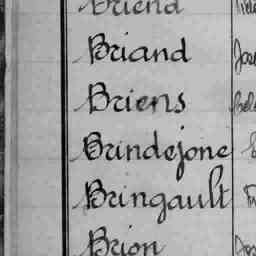 Briend
Briand
Briens
Brindejonc
Bringault
Brion